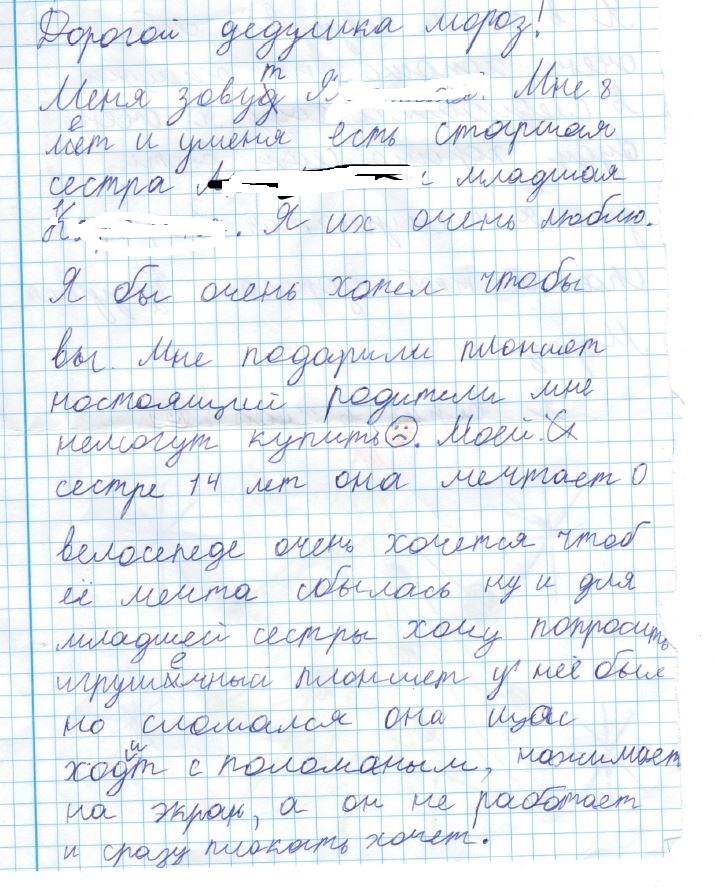 Дорогой дедушка мороз!
Меня зовут Я. Мне 8
лет и уменя есть старшая
сестра А и младшая
К. Я их очень люблю.
Я бы очень хотел чтобы
вы. Мне подарили планшет
настоящий родители мне
немогут купить☹. Моей
сестре 14 лет она мечтает о
велосепеде очень хочется чтоб
её мечта сбылась ну и для
младшей сестры хочу попросить
игрушечный планшет у неё был
но сломался она щас
ходит с поломаным, нажимает
на экран, а он не работает
и сразу плакать хочет.